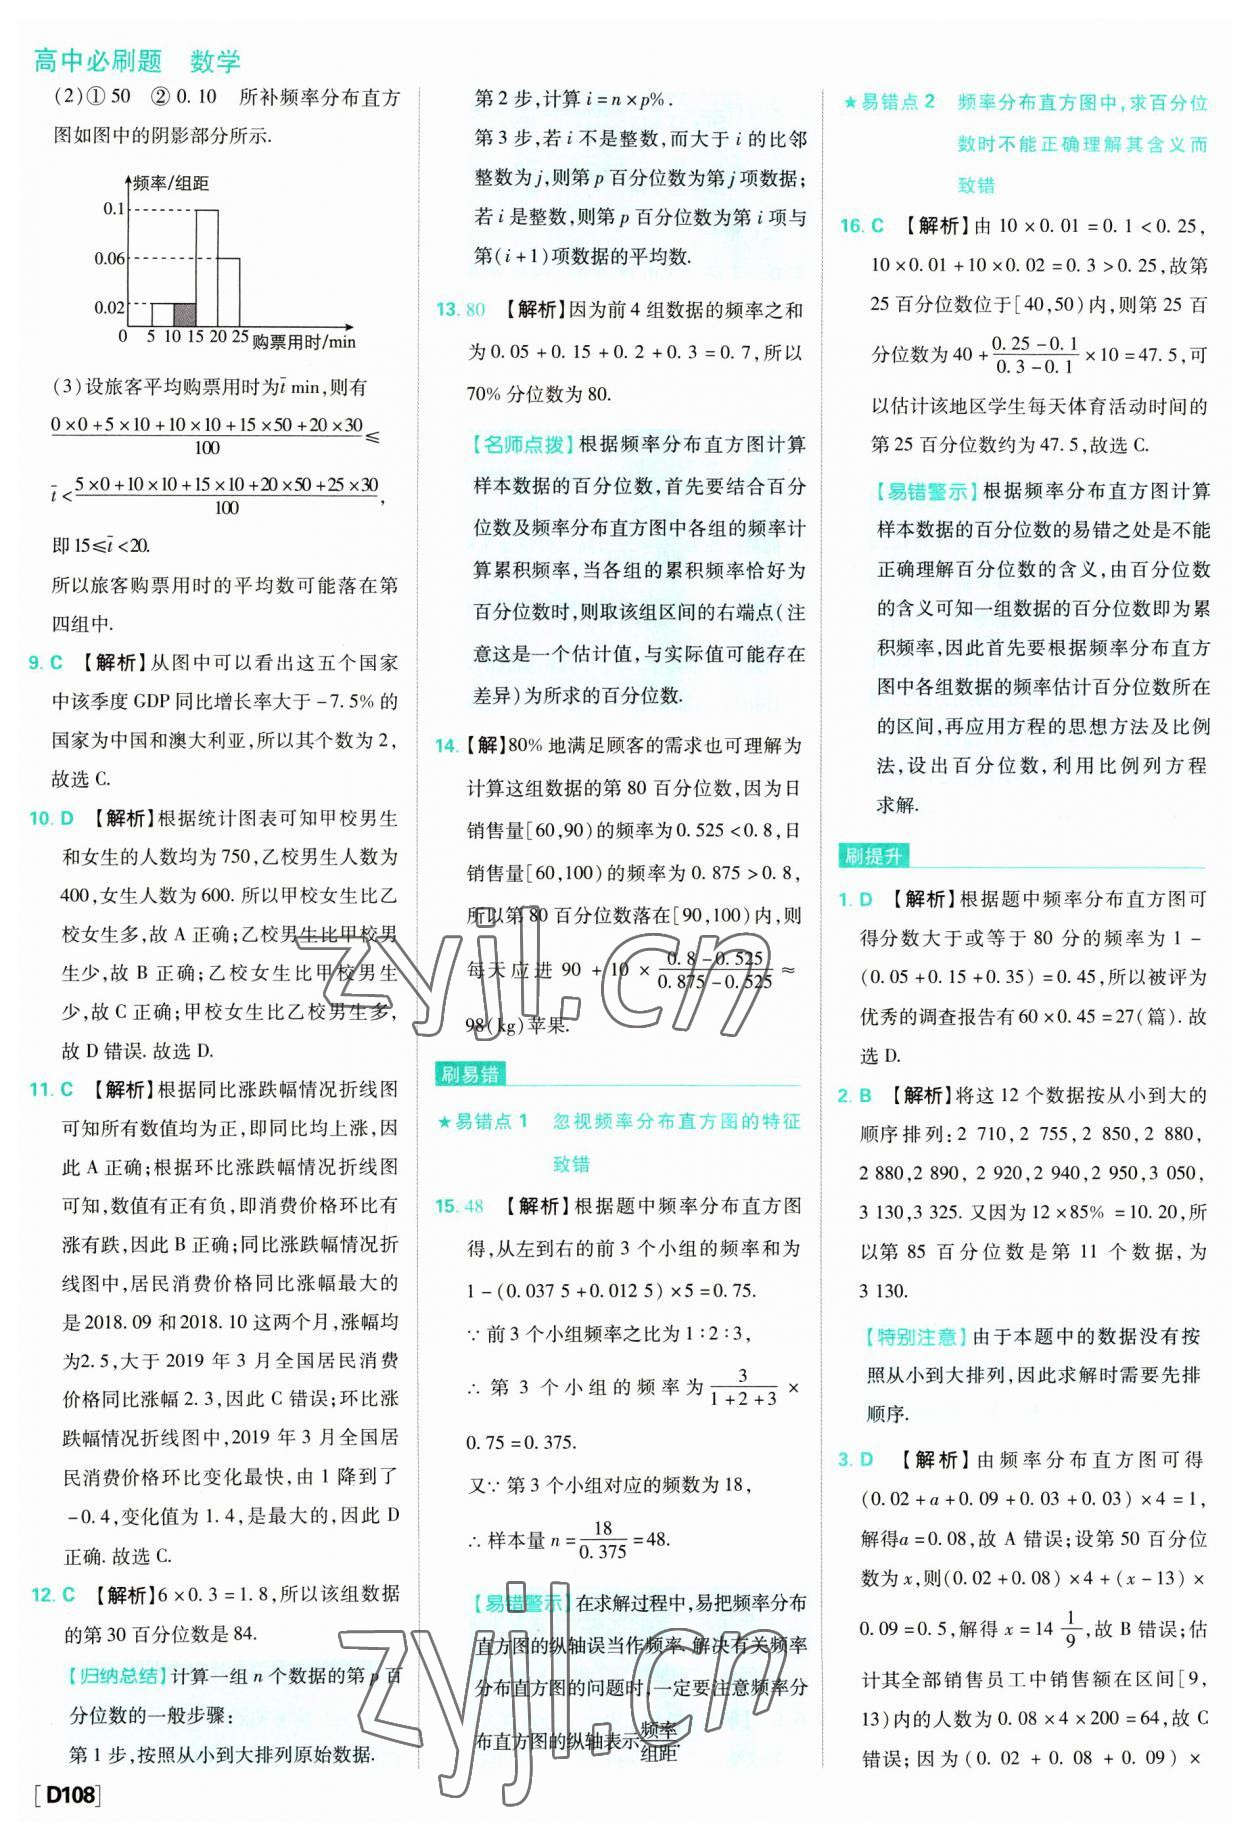 高中必刷题　数学
(2)①50　②0.10　所补频率分布直方
图如图中的阴影部分所示.
频率/组距
0.1
0.06
0.02
0　5　10　15　20　25　购票用时/min
(3)设旅客平均购票用时为t̄ min,则有
(0×0+5×10+10×10+15×50+20×30)/100≤
t̄<(5×0+10×10+15×10+20×50+25×30)/100,
即15≤t̄<20.
所以旅客购票用时的平均数可能落在第
四组中.
9. C　【解析】从图中可以看出这五个国家
中该季度GDP同比增长率大于-7.5%的
国家为中国和澳大利亚,所以其个数为2,
故选C.
10. D　【解析】根据统计图表可知甲校男生
和女生的人数均为750,乙校男生人数为
400,女生人数为600.所以甲校女生比乙
校女生多,故A正确;乙校男生比甲校男
生少,故B正确;乙校女生比甲校男生
少,故C正确;甲校女生比乙校男生多,
故D错误.故选D.
11. C　【解析】根据同比涨跌幅情况折线图
可知所有数值均为正,即同比均上涨,因
此A正确;根据环比涨跌幅情况折线图
可知,数值有正有负,即消费价格环比有
涨有跌,因此B正确;同比涨跌幅情况折
线图中,居民消费价格同比涨幅最大的
是2018.09和2018.10这两个月,涨幅均
为2.5,大于2019年3月全国居民消费
价格同比涨幅2.3,因此C错误;环比涨
跌幅情况折线图中,2019年3月全国居
民消费价格环比变化最快,由1降到了
-0.4,变化值为1.4,是最大的,因此D
正确.故选C.
12. C　【解析】6×0.3=1.8,所以该组数据
的第30百分位数是84.
【归纳总结】计算一组n个数据的第p百
分位数的一般步骤:
第1步,按照从小到大排列原始数据.
[D108]
第2步,计算i=n×p%.
第3步,若i不是整数,而大于i的比邻
整数为j,则第p百分位数为第j项数据;
若i是整数,则第p百分位数为第i项与
第(i+1)项数据的平均数.
13. 80　【解析】因为前4组数据的频率之和
为0.05+0.15+0.2+0.3=0.7,所以
70%分位数为80.
【名师点拨】根据频率分布直方图计算
样本数据的百分位数,首先要结合百分
位数及频率分布直方图中各组的频率计
算累积频率,当各组的累积频率恰好为
百分位数时,则取该组区间的右端点(注
意这是一个估计值,与实际值可能存在
差异)为所求的百分位数.
14. 【解】80%地满足顾客的需求也可理解为
计算这组数据的第80百分位数,因为日
销售量[60,90)的频率为0.525<0.8,日
销售量[60,100)的频率为0.875>0.8,
所以第80百分位数落在[90,100)内,则
每天应进 90+10×(0.8-0.525)/(0.875-0.525)≈
98(kg)苹果.
刷易错
★易错点1　忽视频率分布直方图的特征
致错
15. 48　【解析】根据题中频率分布直方图
得,从左到右的前3个小组的频率和为
1-(0.037 5+0.012 5)×5=0.75.
∵前3个小组频率之比为1∶2∶3,
∴第3个小组的频率为3/(1+2+3)×
0.75=0.375.
又∵第3个小组对应的频数为18,
∴样本量n=18/0.375=48.
【易错警示】在求解过程中,易把频率分布
直方图的纵轴误当作频率.解决有关频率
分布直方图的问题时,一定要注意频率分
布直方图的纵轴表示频率/组距.
★易错点2　频率分布直方图中,求百分位
数时不能正确理解其含义而
致错
16. C　【解析】由10×0.01=0.1<0.25,
10×0.01+10×0.02=0.3>0.25,故第
25百分位数位于[40,50)内,则第25百
分位数为40+(0.25-0.1)/(0.3-0.1)×10=47.5,可
以估计该地区学生每天体育活动时间的
第25百分位数约为47.5,故选C.
【易错警示】根据频率分布直方图计算
样本数据的百分位数的易错之处是不能
正确理解百分位数的含义,由百分位数
的含义可知一组数据的百分位数即为累
积频率,因此首先要根据频率分布直方
图中各组数据的频率估计百分位数所在
的区间,再应用方程的思想方法及比例
法,设出百分位数,利用比例列方程
求解.
刷提升
1. D　【解析】根据题中频率分布直方图可
得分数大于或等于80分的频率为1-
(0.05+0.15+0.35)=0.45,所以被评为
优秀的调查报告有60×0.45=27(篇).故
选D.
2. B　【解析】将这12个数据按从小到大的
顺序排列:2 710,2 755,2 850,2 880,
2 880,2 890,2 920,2 940,2 950,3 050,
3 130,3 325.又因为12×85%=10.20,所
以第85百分位数是第11个数据,为
3 130.
【特别注意】由于本题中的数据没有按
照从小到大排列,因此求解时需要先排
顺序.
3. D　【解析】由频率分布直方图可得
(0.02+a+0.09+0.03+0.03)×4=1,
解得a=0.08,故A错误;设第50百分位
数为x,则(0.02+0.08)×4+(x-13)×
0.09=0.5,解得x=14 1/9,故B错误;估
计其全部销售员工中销售额在区间[9,
13)内的人数为0.08×4×200=64,故C
错误;因为(0.02+0.08+0.09)×
zyjl.cn
zyjl.cn